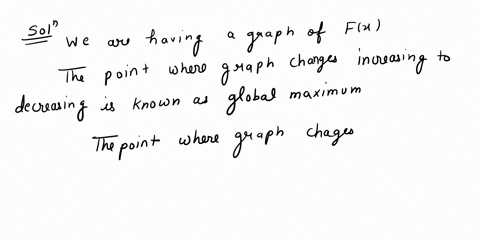 Solⁿ We are having a graph of F(x)
The point where graph changes increasing to
decreasing is known as global maximum
The point where graph chages